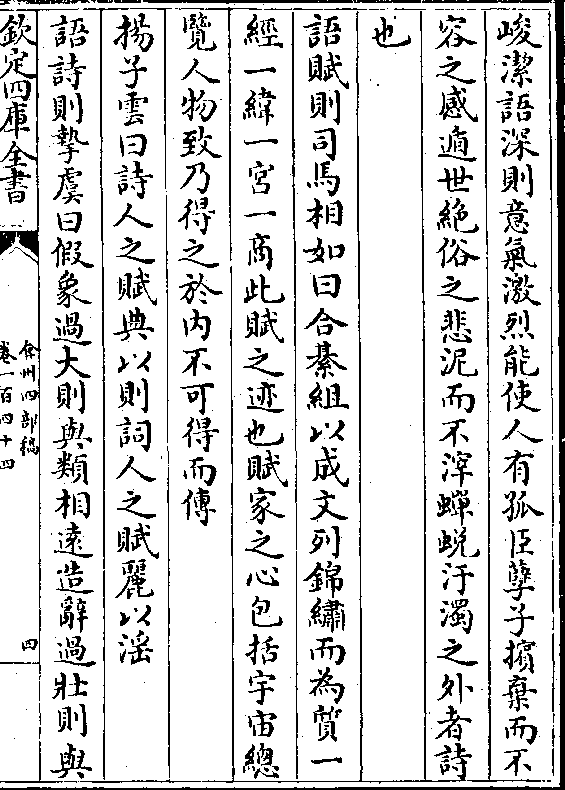 峻潔語深則意氣激烈能使人有孤臣孽子擯棄而不
容之感遁世絶俗之悲泥而不滓蟬蜕汙濁之外者詩
也
語賦則司馬相如曰合綦組以成文列錦繡而為質一
經一緯一宮一商此賦之迹也賦家之心包括宇宙總
覽人物致乃得之於内不可得而傳
揚子雲曰詩人之賦典以則詞人之賦麗以淫
語詩則摯虞曰假象過大則與類相逺造辭過壯則與
欽定四庫全書
弇州四部稿
卷一百四十四
四